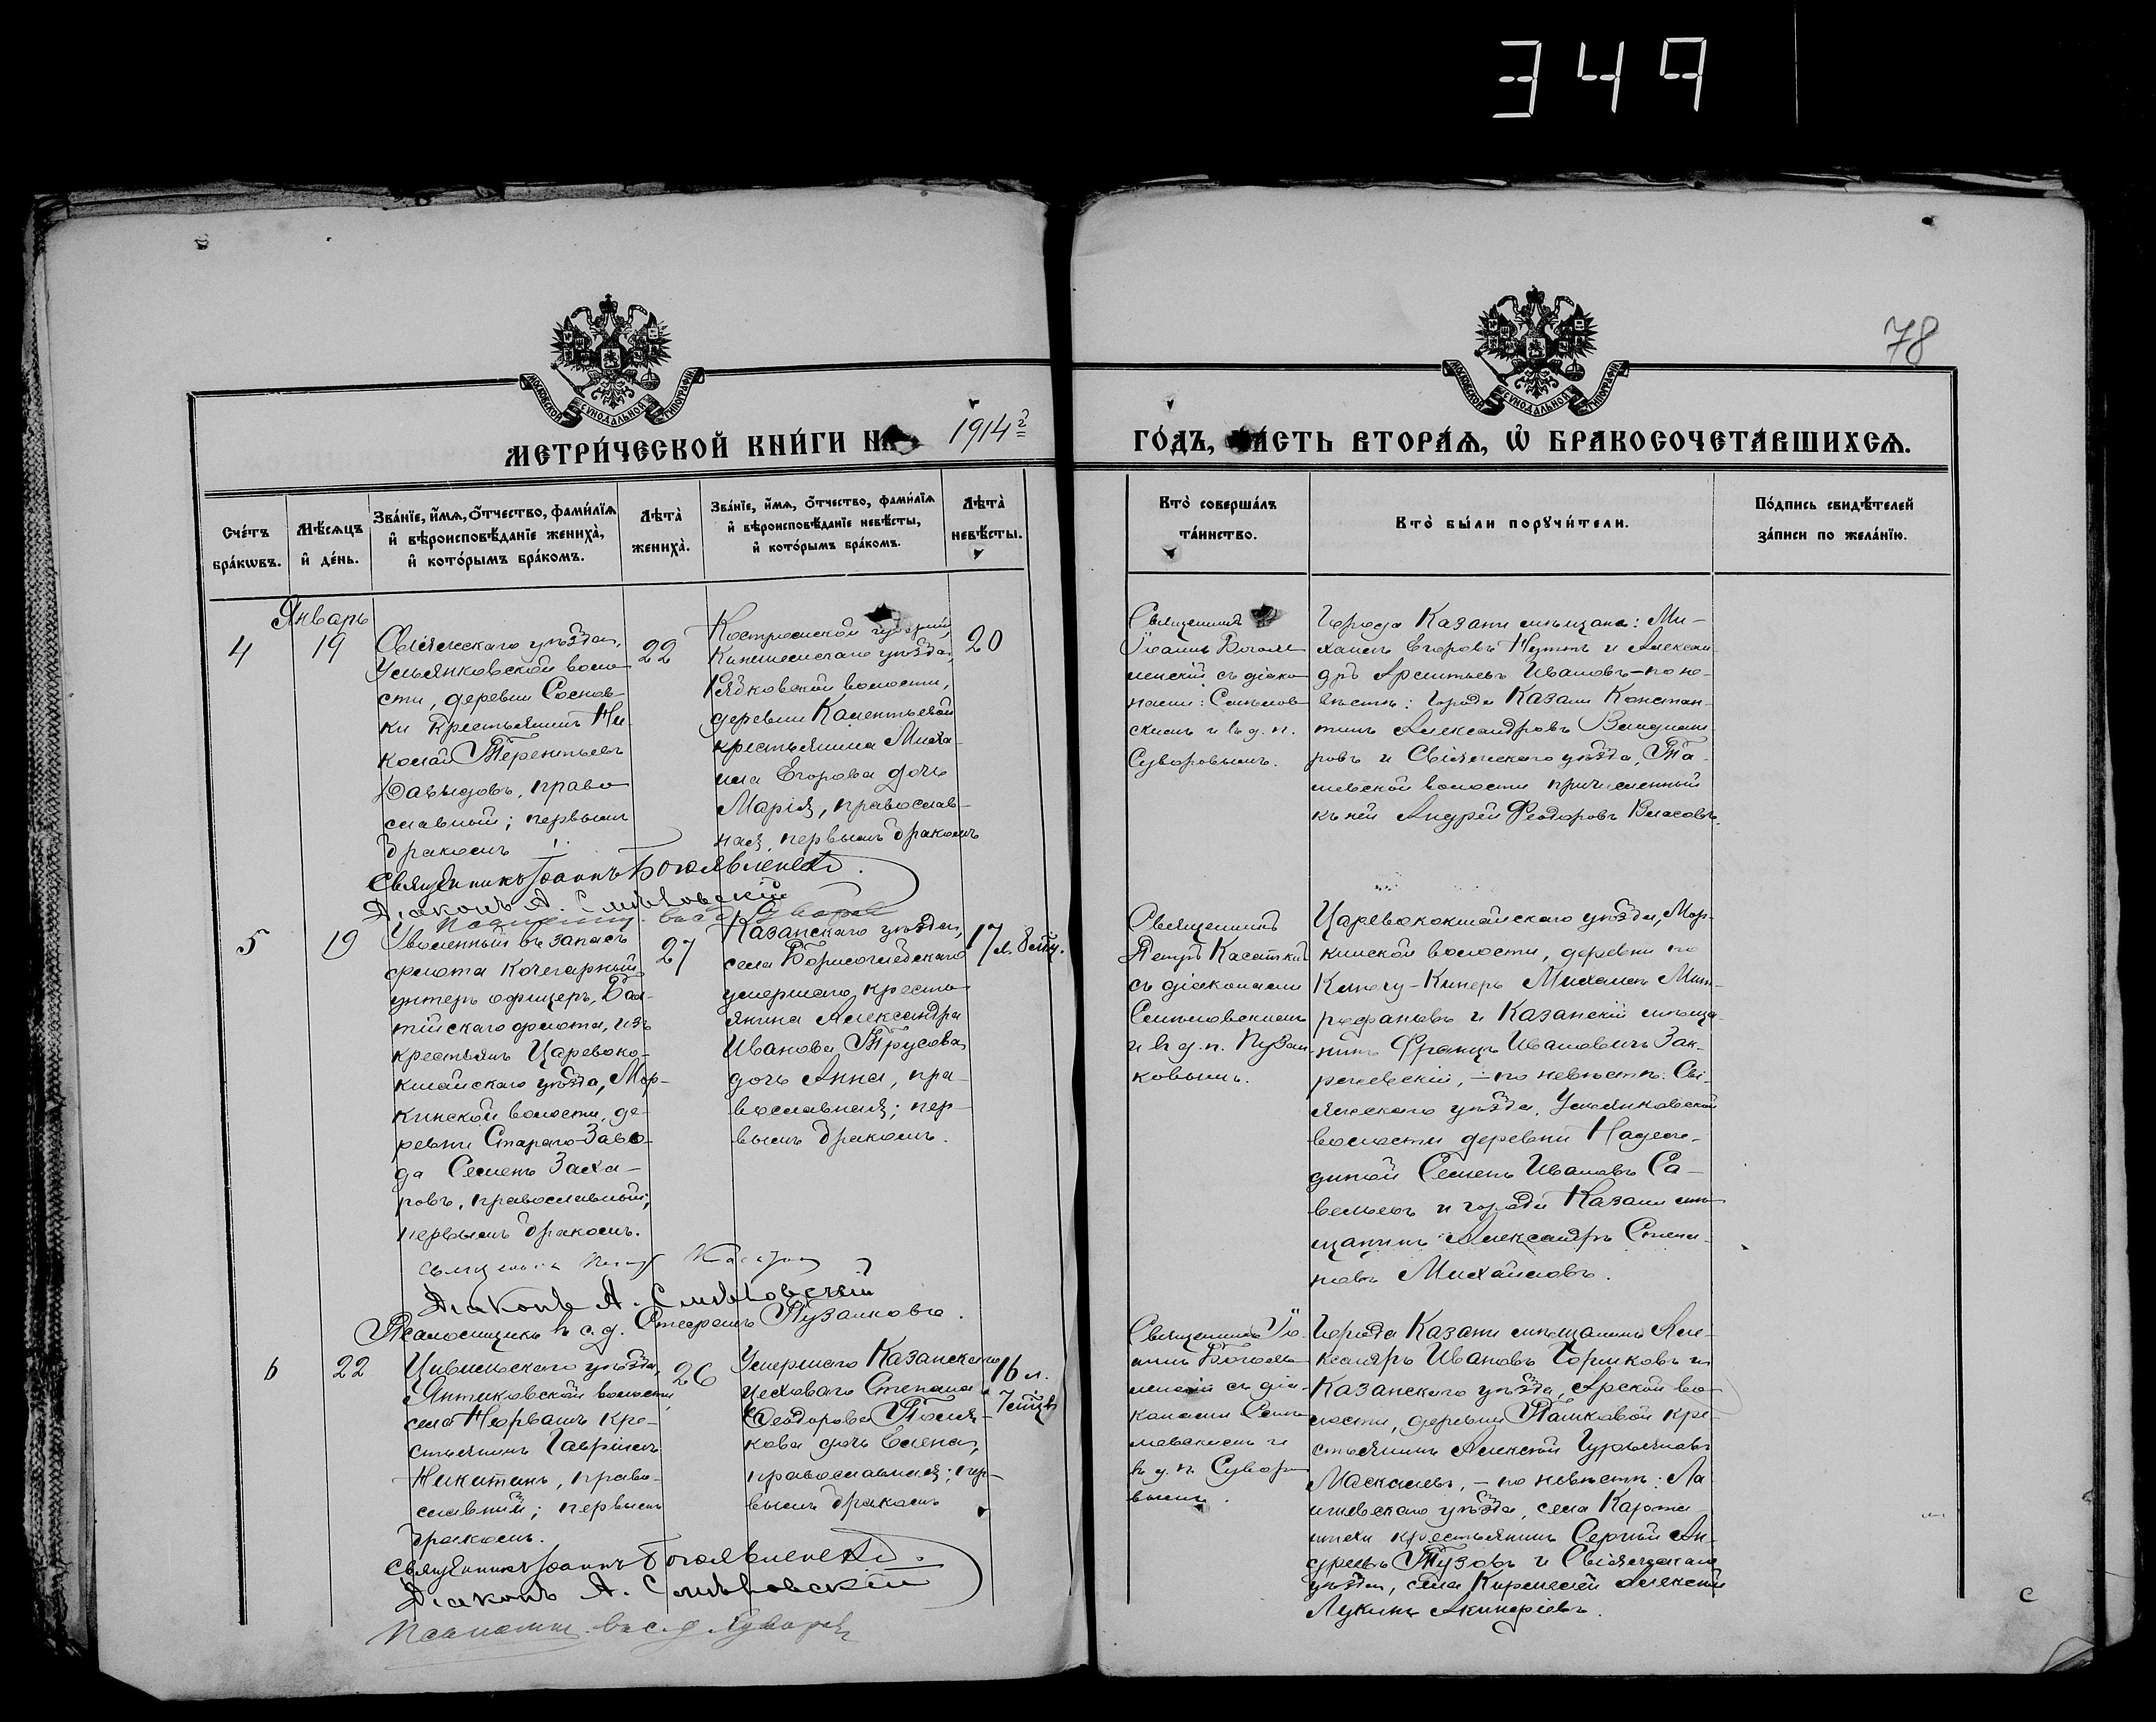 349
78
МОСКОВСКОЙ СУНОДАЛЬНОЙ ТИПОГРАФІИ
МОСКОВСКОЙ СУНОДАЛЬНОЙ ТИПОГРАФІИ
МЕТРИ́ЧЕСКОЙ КНИ́ГИ НА 1914 г̳ ГО́ДЪ, ЧА́СТЬ ВТОРА́Ѧ, Ѽ БРАКОСОЧЕТА́ВШИХСѦ.
Сче́тъ бра́кѡвъ.
Мѣ́сѧцъ и҆ де́нь.
Зва́нїе, и҆́мѧ, ѻ҆́тчество, фами́лїѧ
и҆ вѣроисповѣ́данїе жениха̀,
и҆ кото́рымъ бра́комъ.
Лѣта̀ жениха̀.
Зва́нїе, и҆́мѧ, ѻ҆́тчество, фами́лїѧ
и҆ вѣроисповѣ́данїе невѣ́сты,
и҆ кото́рымъ бра́комъ.
Лѣта̀ невѣ́сты.
Кто̀ соверша́лъ
та́инство.
Кто̀ бы́ли порꙋчи́тели.
По́дпись свидѣ́телей
за́писи по жела́нїю.
Январь
4
19
Свіяжскаго уѣзда,
Ульянковской воло
сти, деревни Соснов-
ки крестьянинъ Ни-
колай Терентьевъ
Давыдовъ, право
славный; первымъ
бракомъ
22
Костромской губерніи,
Кинешемскаго уѣзда,
волости,
деревни
крестьянина Миха-
ила Егорова дочь
Марія, православ-
ная, первымъ бракомъ
20
Священникъ
Іоаннъ Богояв
ленскій съ діако
нами: Смѣлов
скимъ и в. д. п.
Суворовымъ.
Города Казани мѣщане: Ми-
хаилъ Егоровъ и Алексан
дръ Арсеньевъ Ивановъ – по не-
вѣстѣ: города Казани Констан-
тинъ Александровъ
ровъ и Свіяжскаго уѣзда, Та-
шевской волости причисленный
къ ней Андрей Ѳеодоровъ Власовъ.
Священникъ Іоаннъ Богоявленскій.
Діаконъ А. Смѣловскій
Псаломщ. в. с. д. Суворовъ
5
19
Уволенный въ запасъ
флота кочегарный
унтеръ офицеръ, Бал-
тійскаго флота, изъ
крестьянъ Царевоко-
кшайскаго уѣзда, Мор-
кинской волости, де-
ревни Стараго-Заво-
да Семенъ Заха-
ровъ, православный;
первымъ бракомъ.
27
Казанскаго уѣзда,
села Борисоглѣбскаго
умершаго кресть
янина Александра
Иванова Трусова
дочь Анна, пра-
вославная; пер-
вымъ бракомъ.
17 л. 8 мѣс.
Священникъ
Петръ Касаткинъ
съ діаконами
Смѣловскимъ
и в. д. п. Пузан-
ковымъ.
Царевококшайскаго уѣзда, Мор-
кинской волости, деревни
Кинеръ Михаилъ Мит-
рофановъ и Казанскій мѣща-
нинъ Францъ Ивановичъ Зак-
ревскій, – по невѣстѣ: Сві-
яжскаго уѣзда, Ульянковской
волости деревни Надеж-
диной Семенъ Ивановъ Са-
вельевъ и города Казани мѣ-
щанинъ Александръ Степа-
новъ Михайловъ.
Священникъ Петръ Касаткинъ
Діаконъ А. Смѣловскій
Псаломщикъ в. с. д. Стефанъ Пузанковъ.
6
22
Цивильскаго уѣзда,
Янтиковской волости
села Норвашъ кре-
стьянинъ Гавріилъ
Никитинъ, право-
славный; первымъ
бракомъ.
26
Умершаго Казанскаго
цеховаго Степана
Ѳеодорова Поля-
кова дочь Елена,
православная; пер-
вымъ бракомъ
16 л.
7 мѣс.
Священникъ Іо-
аннъ Богояв
ленскій съ діа-
конами Смѣ-
ловскимъ и
в. д. п. Суворо
вымъ.
Города Казани мѣщанинъ Але-
ксандръ Ивановъ Горшковъ и
Казанскаго уѣзда, Арской во-
лости, деревни Пашковой кре-
стьянинъ Алексѣй Гурьяновъ
Москалевъ, – по невѣстѣ: Ла
ишевскаго уѣзда, села
крестьянинъ Сергѣй Ан-
дреевъ Тузовъ и Свіяжскаго
уѣзда, села Алексѣй
Лукинъ
Священникъ Іоаннъ Богоявленскій.
Діаконъ А. Смѣловскій
Псаломщ. в. с. д. Суворовъ